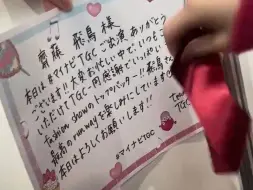 齋藤 飛鳥 様
本日は #マイナビTGC ご出演ありがとう
ございます!! 大変お忙しい中で、いつも
いただけてTGC一同感謝でいっぱい
fashion showのトップバッター!! 飛鳥さん
最高のrunwayを楽しみにしています!!
本日はよろしくお願いします!!
TGC
#マイナビTGC